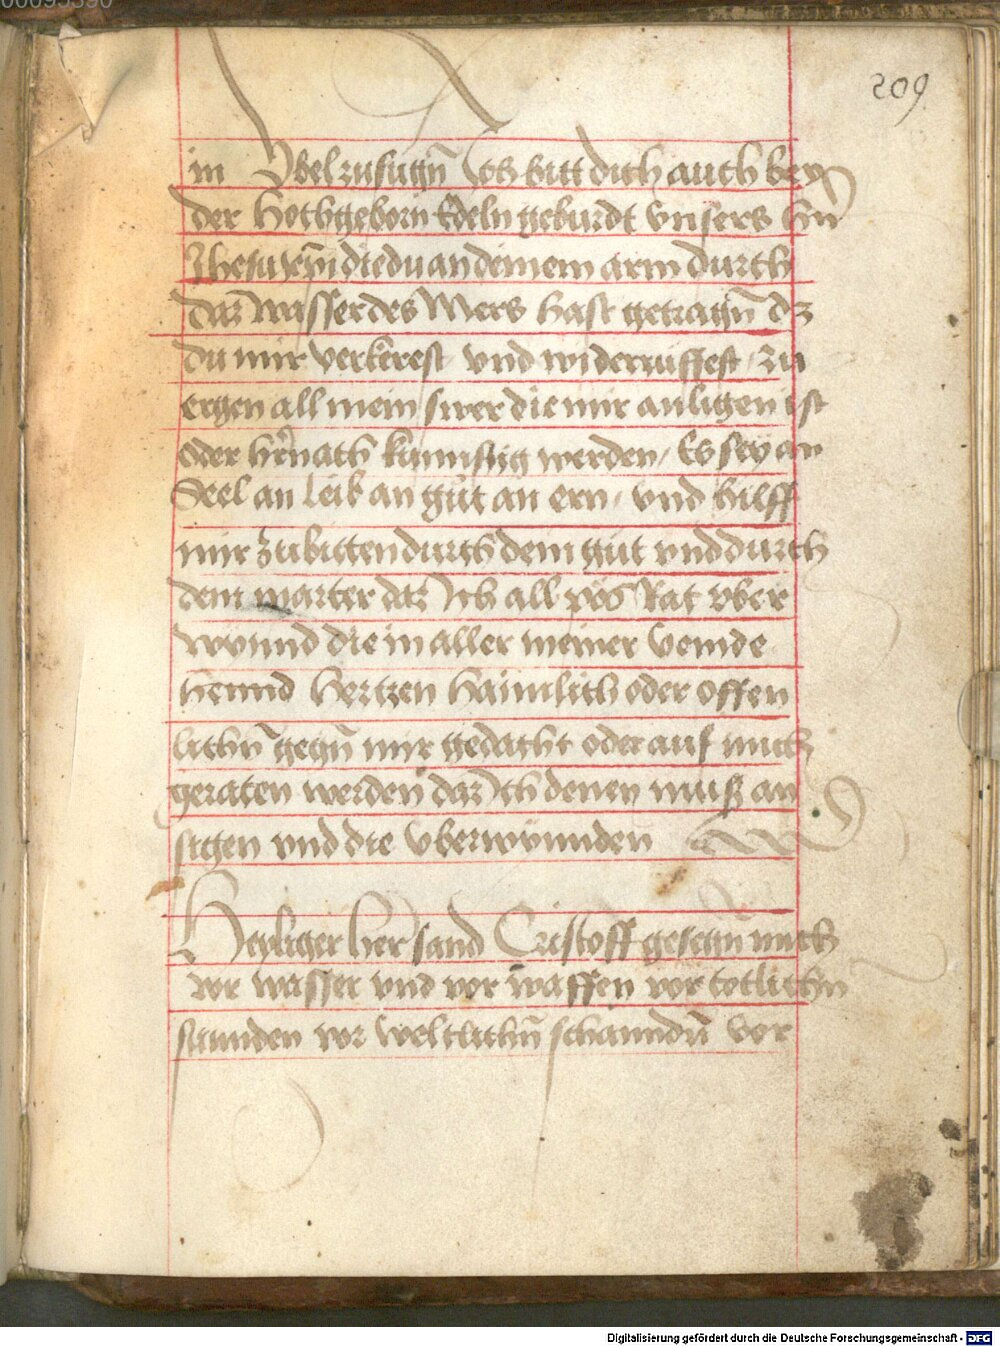 00095390
209
in Vbel zufugn̄ Ich bitt dich auch bey
der hochgeborn Edeln geburdt vnsers hn̄
Jhesu xp̄i die du an deinem arm durch
daz wasser des Mers hast getragn̄ dz
du mir verkerest vnd widerruffest zu
ergen all mein swer die mir anligen ist
oder hernach kunnfftig werden / Es sey an
Seel an leib an gut an ern / vnd hilff
mir zubitten durch dein gut vnd durch
dein marter daz Ich all pös Rat vber
wynnd die in aller meiner veinde
hennd hertzen haimlich oder offen
lichn̄ gegn̄ mir gedacht oder auf mich
geraten werden daz Ich denen muß an
sigen vnd die vberwynnden
Heyliger her sand Cristoff gesegn̄ mich
vor wasser vnd vor waffen vor totlichn̄
sunnden vor weltlichn̄ schanndn̄ vor
Digitalisierung gefördert durch die Deutsche Forschungsgemeinschaft - DFG